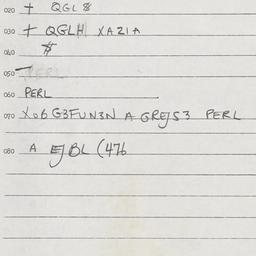 020 + QGL 8
030 + QGLH XAZIA
040 $
050 - PERL
060 PERL
070 X06G3FUN3N A GREJS3 PERL
080 A EJBL (476